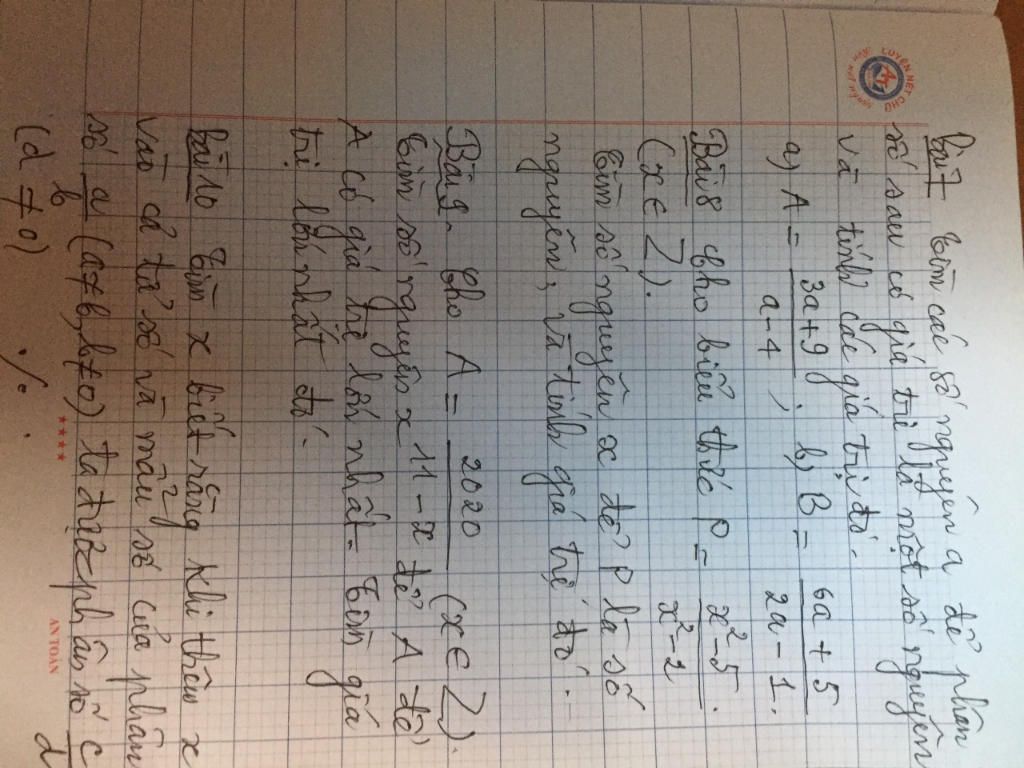 LUYỆN NÉT CHỮ
Bài 7 Tìm các số nguyên a để phân
số sau có giá trị là một số nguyên
và tính các giá trị đó.
a) A = \frac{3a+9}{a-4}, b) B = \frac{6a+5}{2a-1}.
Bài 8 Cho biểu thức P = \frac{x^2-5}{x^2-2}.
(x ∈ Z).
Tìm số nguyên x để P là số
nguyên, và tính giá trị đó.
Bài 9. Cho A = \frac{2020}{11-x} (x ∈ Z).
Tìm số nguyên x để A để
A có giá trị lớn nhất. Tìm giá
trị lớn nhất đó.
Bài 10 Tìm x biết rằng khi thêm x
vào cả tử số và mẫu số của phân
số \frac{a}{b} (a≠b, b≠0) ta được phân số \frac{c}{d}
(d ≠ 0) ./.
ANTOÀN